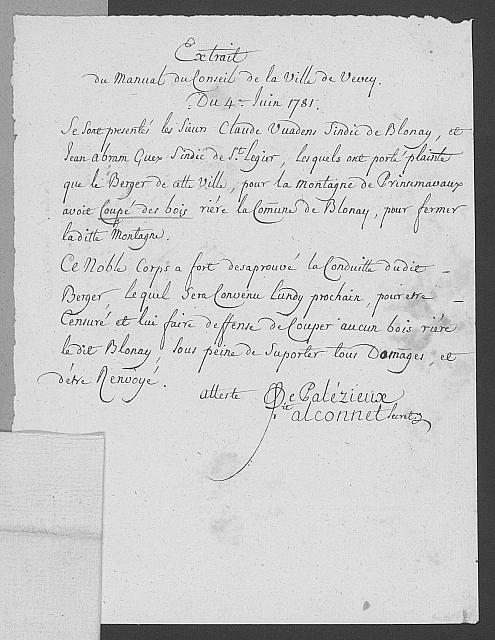 Extrait
du Manual du Conseil de la Ville de Vevey.
Du 4e Juin 1781.
Se sont presentés les Sieurs Claude Vuadens Sindic de Blonay, et
Jean abram Guex Sindic de St. Legier, lesquels ont porté plainte
que le Berger de cette Ville, pour la montagne de Prinsmavaux
avoit Coupé des bois riére la Comune de Blonay, pour fermer
laditte Montagne.
Ce Noble Corps a fort desaprouvé la Conduitte dudit
Berger lequel Sera Convenu Lundy prochain, pour etre
Censuré et lui faire deffense de Couper aucun bois riére
le dit Blonay, Sous peine de Suporter tous Domages, et
d'étre Renvoyé.
atteste De Palézieux
alconnet Secret.